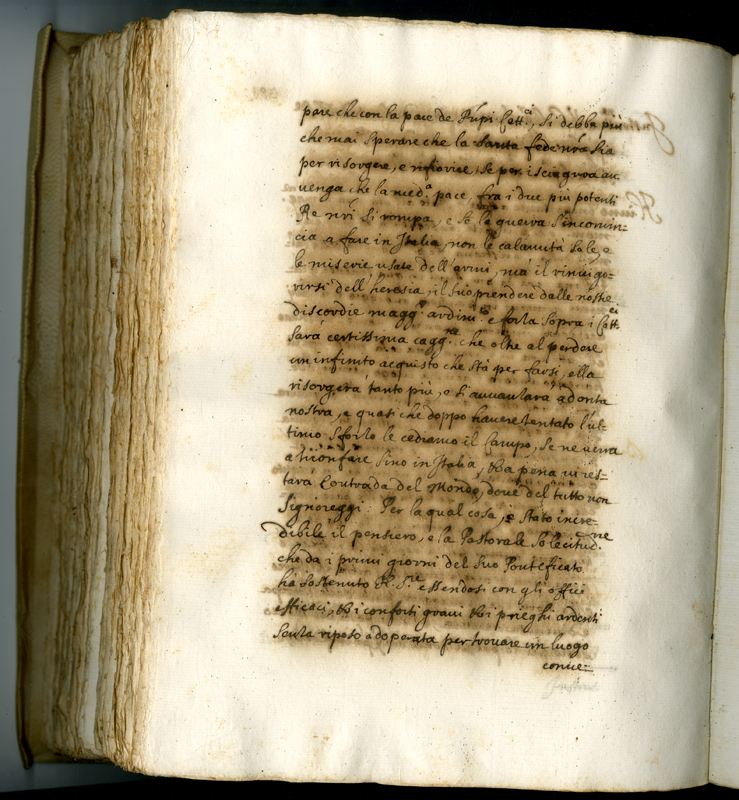 pare che con la pace de Prīpi Catt.ci, si debba più
che mai sperare che la santa fede nr̄a sia
per risorgere, e rifiorire, se per isciagura au
uenga che la med.a pace, fra i due più potenti
Re nr̄i si rompa, e se la guerra s'incomin-
cia a fare in Italia, non le calamità sole, e
le miserie usate dell'armi, mà il rinuigo-
rirsi dell'heresia, il suo prendere dalle nostre
discordie magg.r ardim.to e forza sopra i Catt.ci
sarà certissima cagg.ne che oltre al perdere
un infinito acquisto che stà per farsi, ella
risorgerà tanto più, e s'auuanzarà ad onta
nostra, e quasi che doppo hauere tentato l'ul-
timo sforzo le cediamo il Campo, se ne uerrà
a trionfare sino in Italia, et a pena ui res-
tarà Contrada del Mondo, doue del tutto non
signoreggi. Per la qual cosa, è stato incre-
dibile il pensiero, e la Pastorale solecitud.ne
che da i primi giorni del suo Ponteficato
hà sostenuto N. S.re essendosi con gli offici
efficaci, et i conforti graui et i prieghi ardenti
senza riposo adoperata per trouare un luogo
conue-